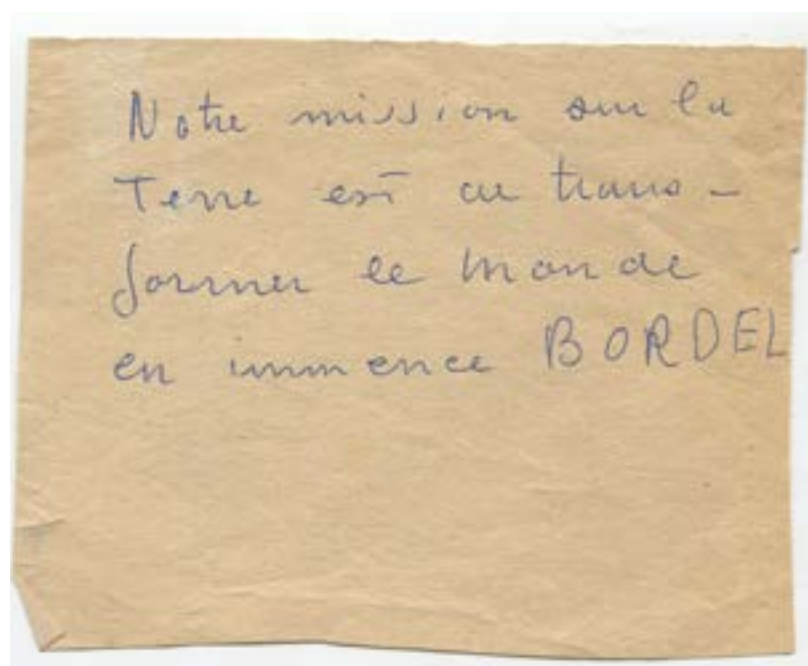 Notre mission sur la
Terre est de trans-
former le monde
en immence BORDEL